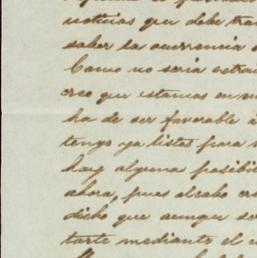 noticias que debe tra
saber la ocurrencia
Como no seria estra
creo que estamos en
ha de ser favorable
tengo ya listas para
hay alguna posibil
ahora, pues al cabo
dicho que aunque
tarte mediante el